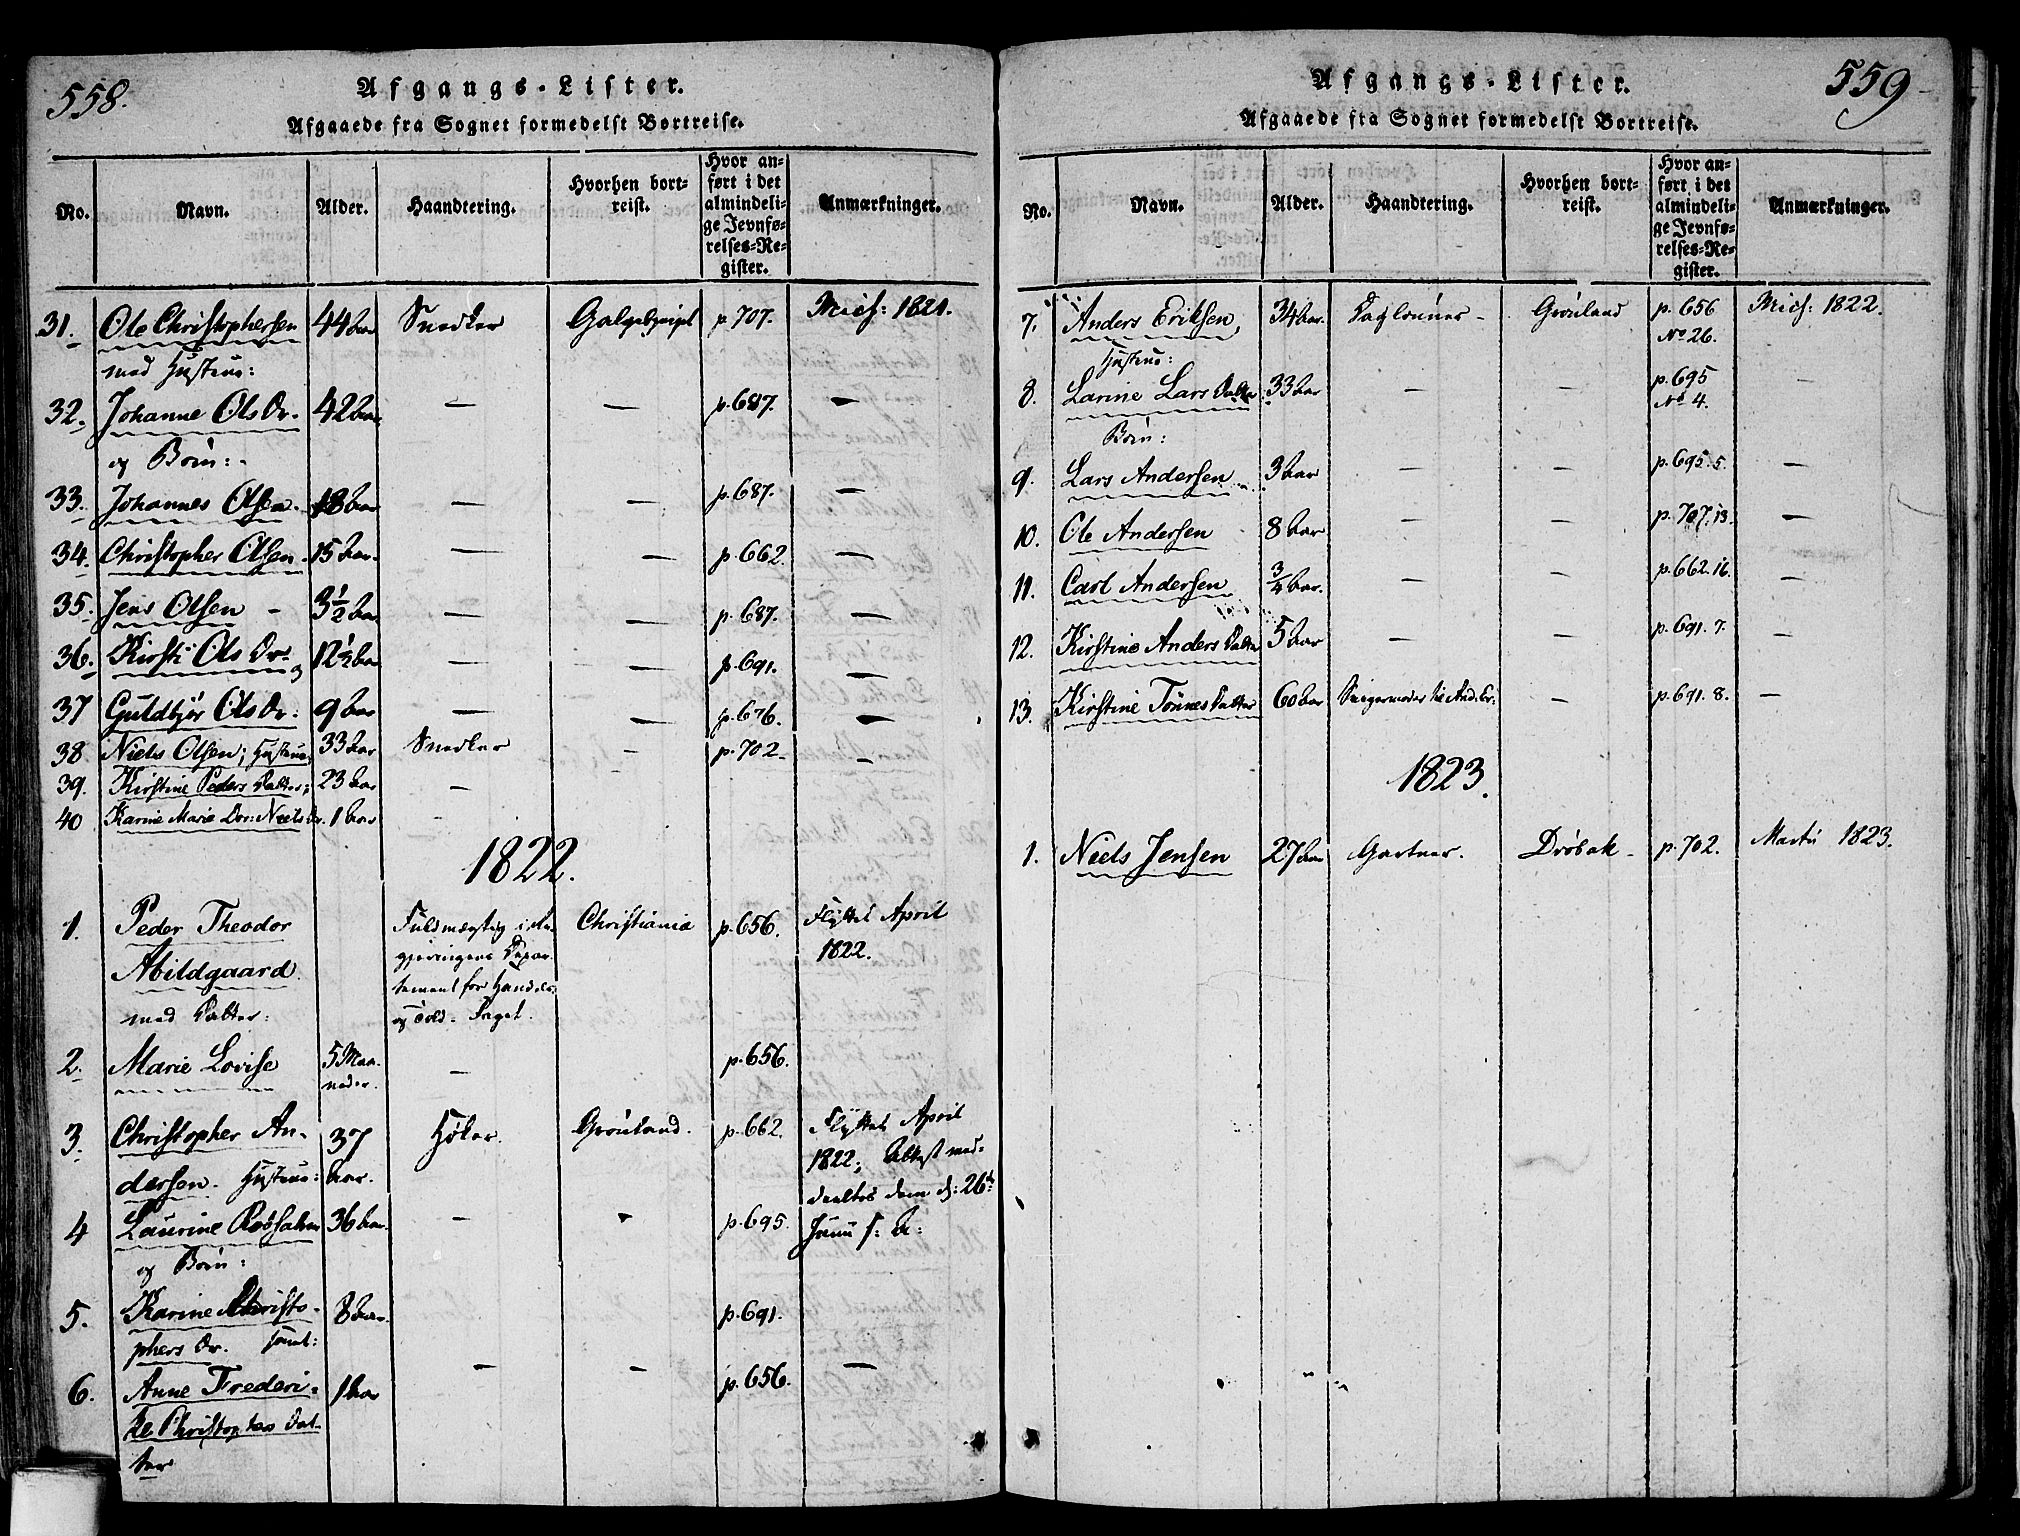 558.
Afgangs-Lister.
Afgaaede fra Sognet formedelst Bortreise.
No. Navn. Alder. Haandtering. Hvorhen bortreist. Hvor anført i det almindelige Jevnførelses-Register. Anmærkninger.
31. Ole Christophersen 44 Aar Snedker p. 707. Mich: 1821.
med Hustrue:
32. Johanne Ols Dr. 42 Aar — — p. 687. —
og Börn:
33. Johannes Olsen 18 Aar — — p. 687. —
34. Christopher Olsen 15 Aar — — p. 662. —
35. Jens Olsen - 3½ Aar — — p. 687. —
36. Kirsti Ols Dr. 12½ Aar — — p. 691. —
37 Guldbjör Ols Dr. 9 Aar — — p. 676. —
38 Niels Olsen; Hustrue 33 Aar Snedker — p. 702. —
39. Kirstine Peders Datter; 23 Aar —
40 Karine Marie Dr: Niels Dr. 1 Aar —
1822.
1. Peder Theodor Fuldmægtig i Re- Christiania p. 656. Flyttet April
Abildgaard gjeringens Depar- 1822.
med Datter: tement for Handels
og Told-Faget.
2. Marie Lovise 5 Maa- — p. 656.
neder.
3. Christopher An- 37 Höker. Grönland. p. 662. Flyttet April
dersen. Hustrue: Aar. 1822; Attest med-
deeltes dem d: 26de
4 Laurine 36 Aar — p. 695. Junii s: A:
og Börn:
5. Karine Christo- 8 Aar. p. 691.
phers Dr. samt:
6. Anne Frederi- 1 Aar — — p. 656. —
ke Christophers Dat-
ter
559
Afgangs-Lister.
Afgaaede fra Sognet formedelst Bortreise.
No. Navn. Alder. Haandtering. Hvorhen bortreist. Hvor anført i det almindelige Jevnførelses-Register. Anmærkninger.
7. Anders Eriksen, 34 Aar. Daglönner - Grönland p. 656 Mich: 1822.
Hustrue: No 26.
8. Larine Lars Datter 33 Aar — — p. 695 —
No 4.
Börn:
9. Lars Andersen 3 Aar — — p. 695. 5. —
10. Ole Andersen 8 Aar — — p. 707. 13. —
11. Carl Andersen ¾ Aar. — — p. 662. 16. —
12. Kirstine Anders Datter 5 Aar — — p. 691. 7. —
13. Kirstine Tönnes Datter 60 Aar Svigermoder til And. Er: — p. 691. 8. —
1823.
1. Niels Jensen 27 Aar Gartner. Dröbak - p. 702. Martii 1823.